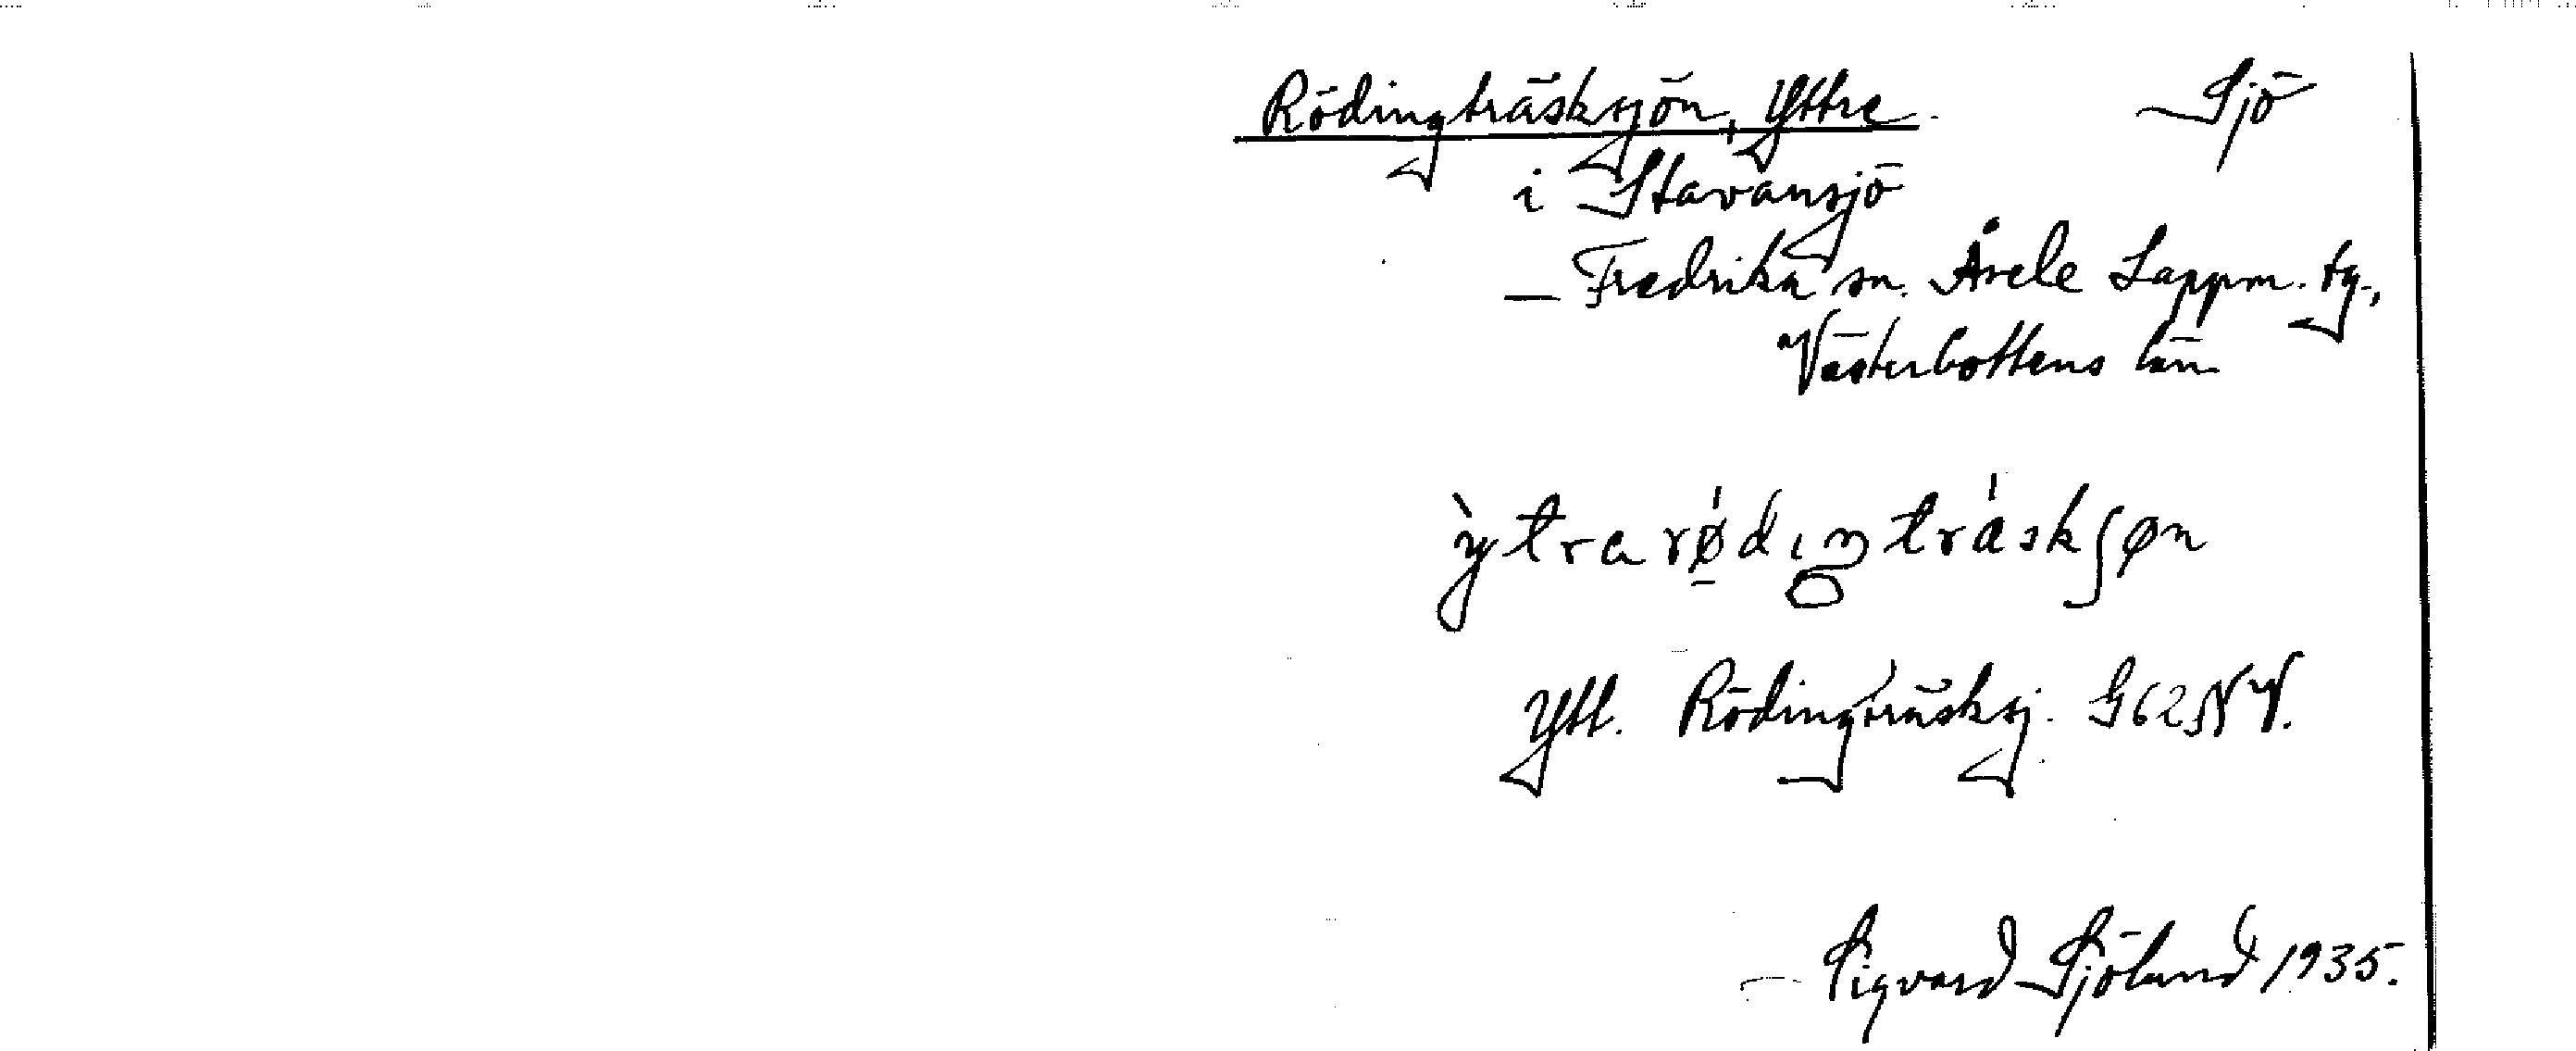 Rödingträsksjön, Yttre. Sjö
i Stavansjö
Fredrika sn. Åsele Lappm. tg.,
Västerbottens län
ỳtrarǿ̱diŋtráskʃøn
Ytt. Rödingträsksj. G62NV.
Sigvard Sjölund 1935.